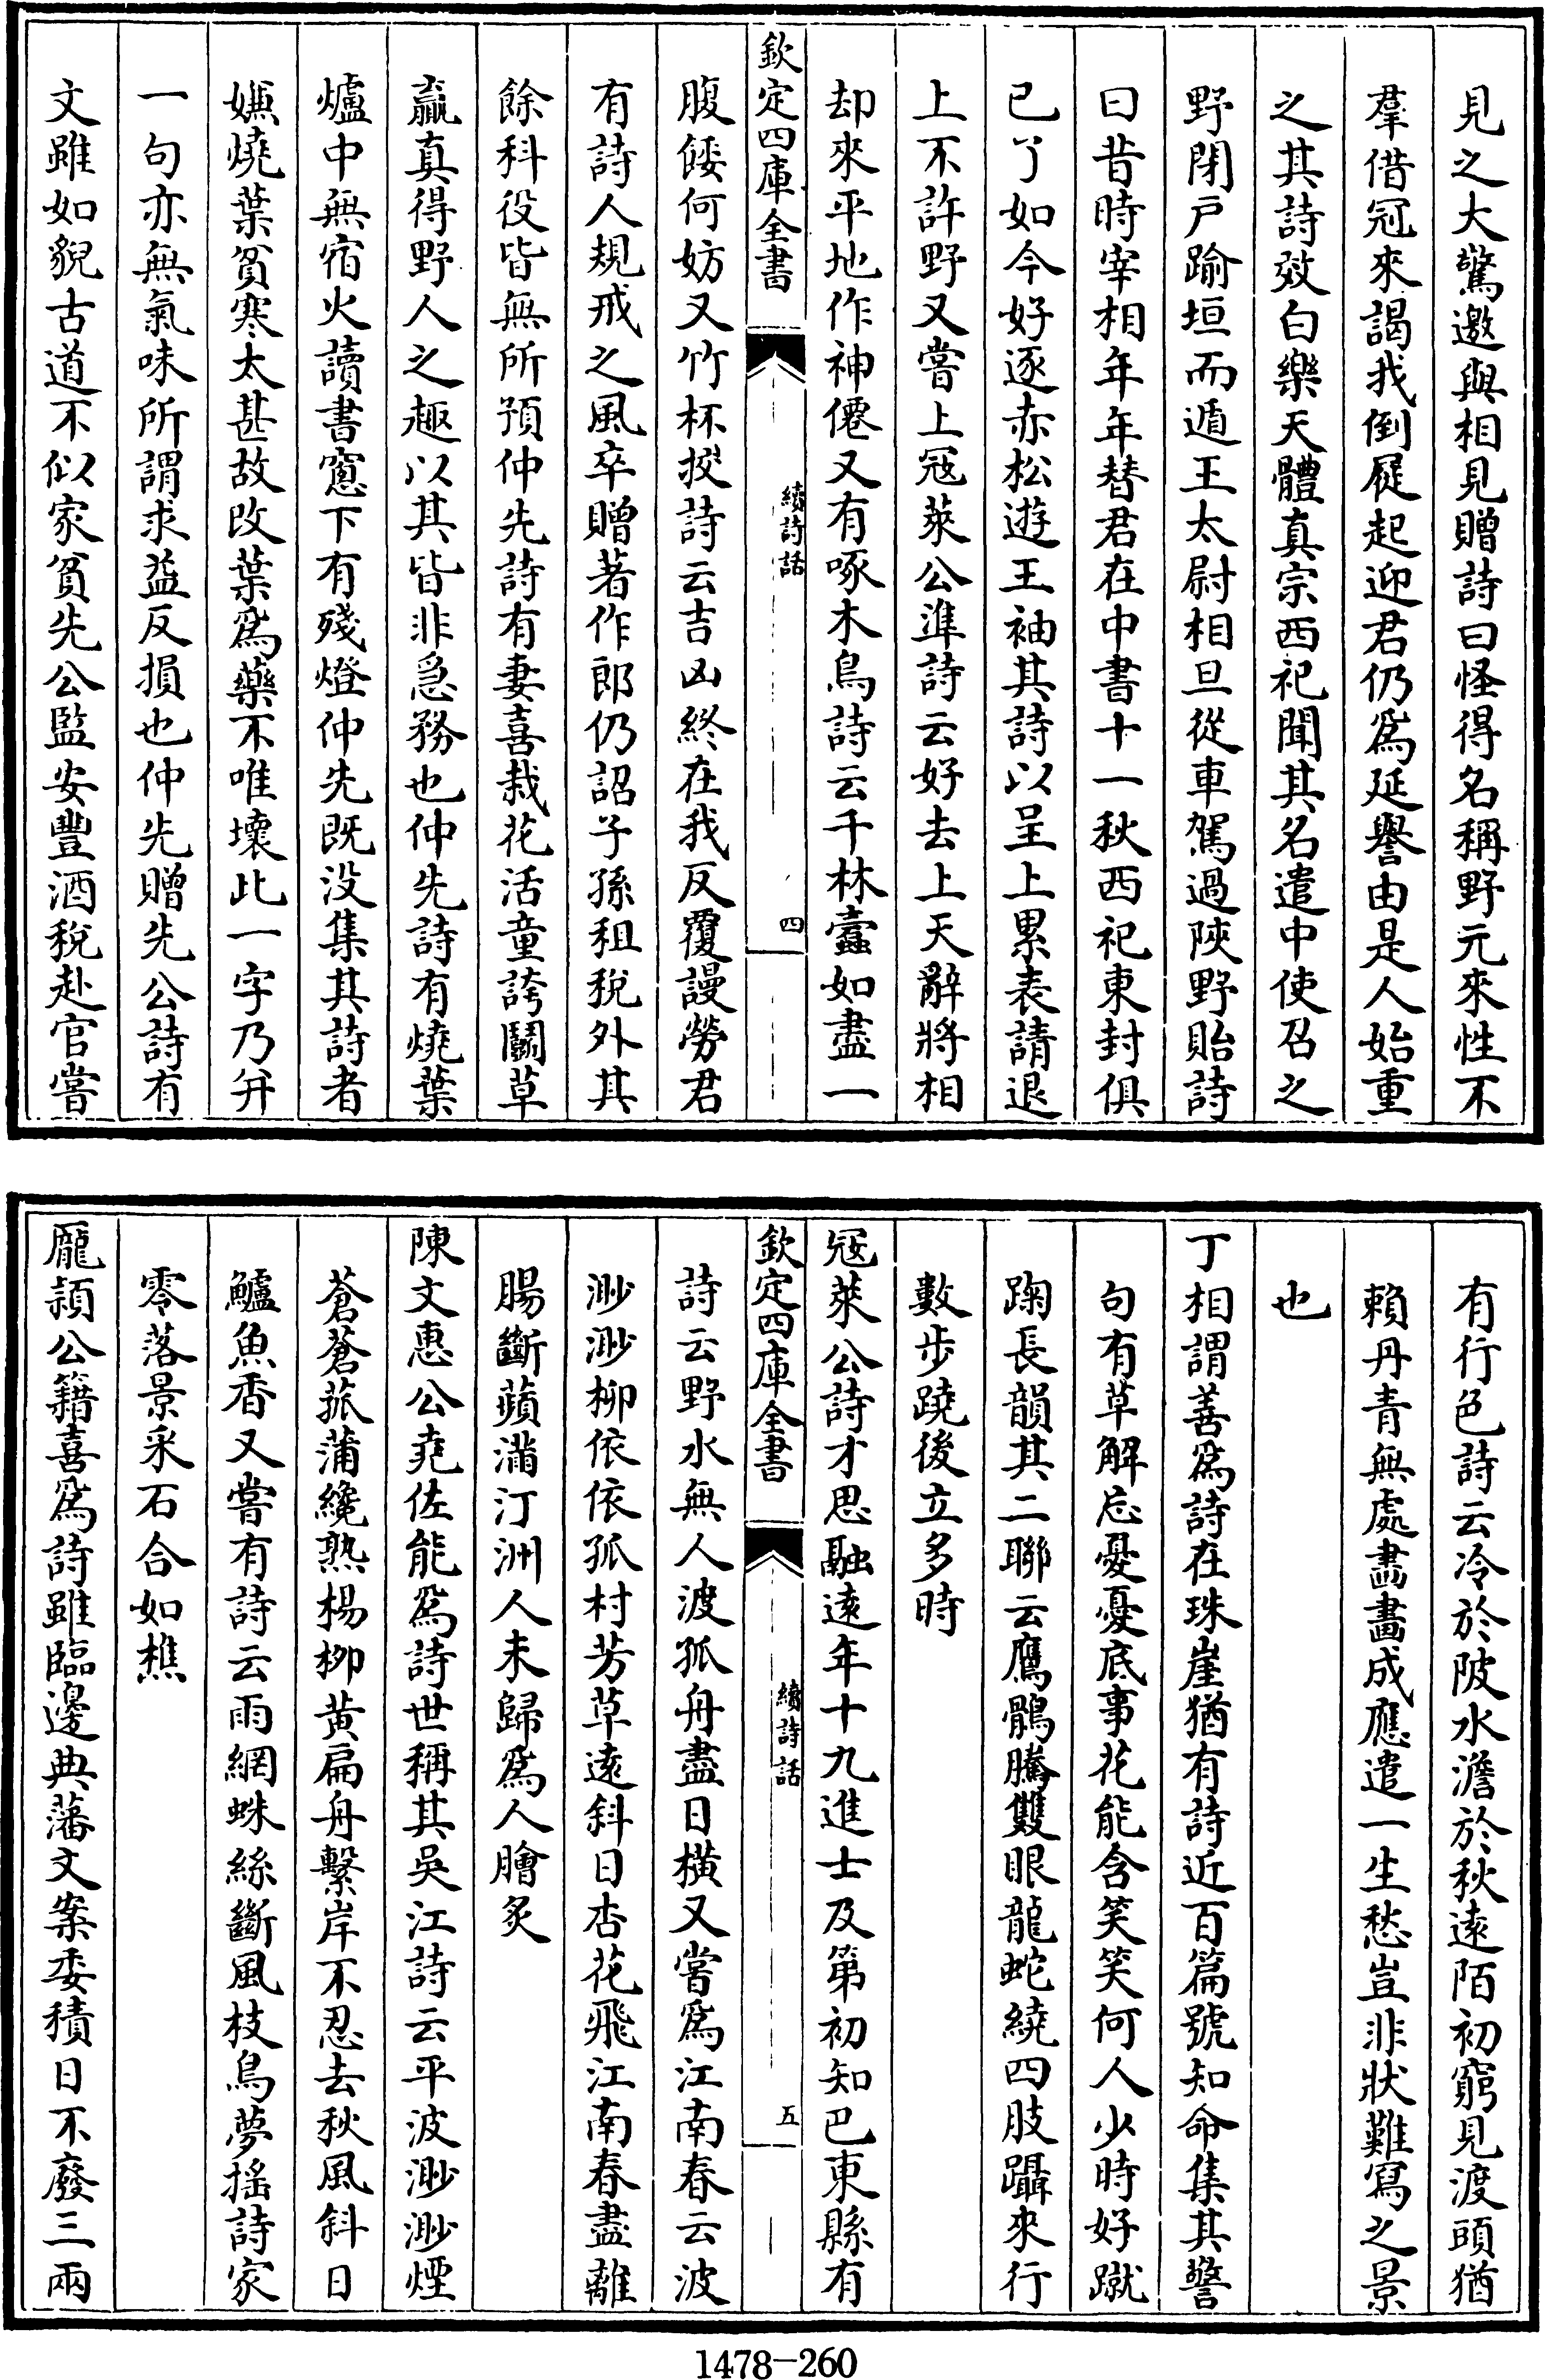 見之大驚邀與相見贈詩曰怪得名稱野元來性不
羣借冠來謁我倒屣起迎君仍為延譽由是人始重
之其詩效白樂天體真宗西祀聞其名遣中使召之
野閉戸踰垣而遁王太尉相旦從車駕過陜野貽詩
曰昔時宰相年年替君在中書十一秋西祀東封俱
已了如今好逐赤松遊王袖其詩以呈上累表請退
上不許野又嘗上冦萊公準詩云好去上天辭將相
却來平地作神僊又有啄木鳥詩云千林蠹如盡一
欽定四庫全書
續詩話
四
腹餧何妨又竹杯挍詩云吉凶終在我反覆謾勞君
有詩人規戒之風卒贈著作郎仍詔子孫租稅外其
餘科役皆無所預仲先詩有妻喜栽花活童誇鬭草
贏真得野人之趣以其皆非急務也仲先詩有燒葉
爐中無宿火讀書窻下有殘燈仲先既没集其詩者
嫌燒葉貧寒太甚故改葉為藥不唯壞此一字乃并
一句亦無氣味所謂求益反損也仲先贈先公詩有
文雖如貌古道不似家貧先公監安豐酒稅赴官嘗
有行色詩云冷於陂水澹於秋遠陌初窮見渡頭猶
賴丹青無處畫畫成應遣一生愁豈非狀難寫之景
也
丁相謂善為詩在珠崖猶有詩近百篇號知命集其警
句有草解忘憂憂底事花能含笑笑何人少時好蹴
踘長韻其二聯云鷹鶻騰雙眼龍蛇繞四肢躡來行
數步蹺後立多時
冦萊公詩才思融遠年十九進士及第初知巴東縣有
欽定四庫全書
續詩話
五
詩云野水無人渡孤舟盡日橫又嘗為江南春云波
渺渺柳依依孤村芳草遠斜日杏花飛江南春盡離
腸斷蘋滿汀洲人未歸為人膾炙
陳文惠公堯佐能為詩世稱其吳江詩云平波渺渺煙
蒼蒼菰蒲纔熟楊栁黄扁舟繫岸不忍去秋風斜日
鱸魚香又嘗有詩云雨網蛛絲斷風枝鳥夢揺詩家
零落景采石合如樵
龎頴公籍喜為詩雖臨邊典藩文案委積日不廢三兩
1478-260